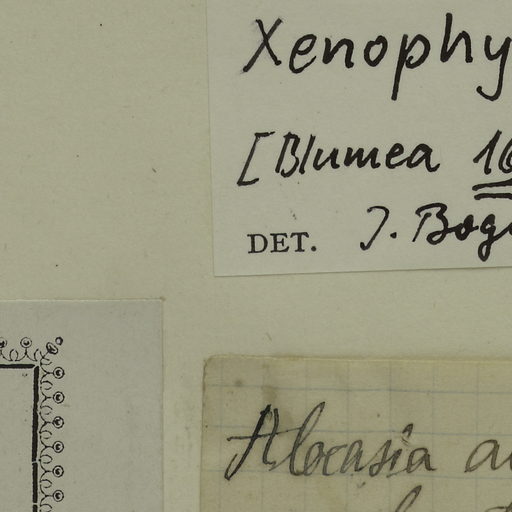 Xenophy
[Blumea 16
DET. J. Bog
Alocasia